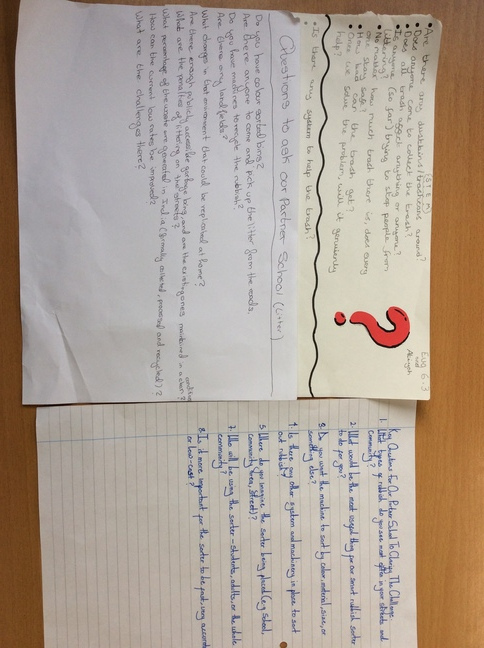 Eva 6.3
and
• Are there any dustbins/trashcans around?
• Does anyone come to collect the trash?
• Does all trash affect anything or anyone?
• Is anyone (so far) trying to stop people from
littering?
• No matter how much trash there is, does every
one stay safe?
• How bad can the trash get?
• Once we solve the problem, will it genuinely
help?
• Is there any system to help the trash?
?
Questions to ask our Partner School (Litter)
Do you have colour sorted bins?
Are there anyone to come and pick up the litter from the roads.
Do you have machines to recycle the rubbish?
Are there any landfields?
What changes in that environment that could be replicated at home?
Are there enough publicly accessible garbage bins, and are the existing ones maintained in a clean?
What are the penalties of littering on the streets?
What percentage of the waste are generated in India (formally collected, processed and recycled)?
How can the current low rates be improved?
What are the challenges there?
Key Questions For Our Partner School To Clarify The Challenge
1. What types of rubbish do you see most often in your streets and
community?
2. What would be the most useful thing for our smart rubbish sorter
to do for you?
3. Do you want the machine to sort by color, material, size, or
something else?
4. Is there any other system and machinery in place to sort
out rubbish?
5. Where do you imagine the sorter being placed (e.g School,
community area, street)?
7. Who will be using the sorter – students, adults, or the whole
community?
8. Is it more important for the sorter to be fast, very accurat
or low-cost?